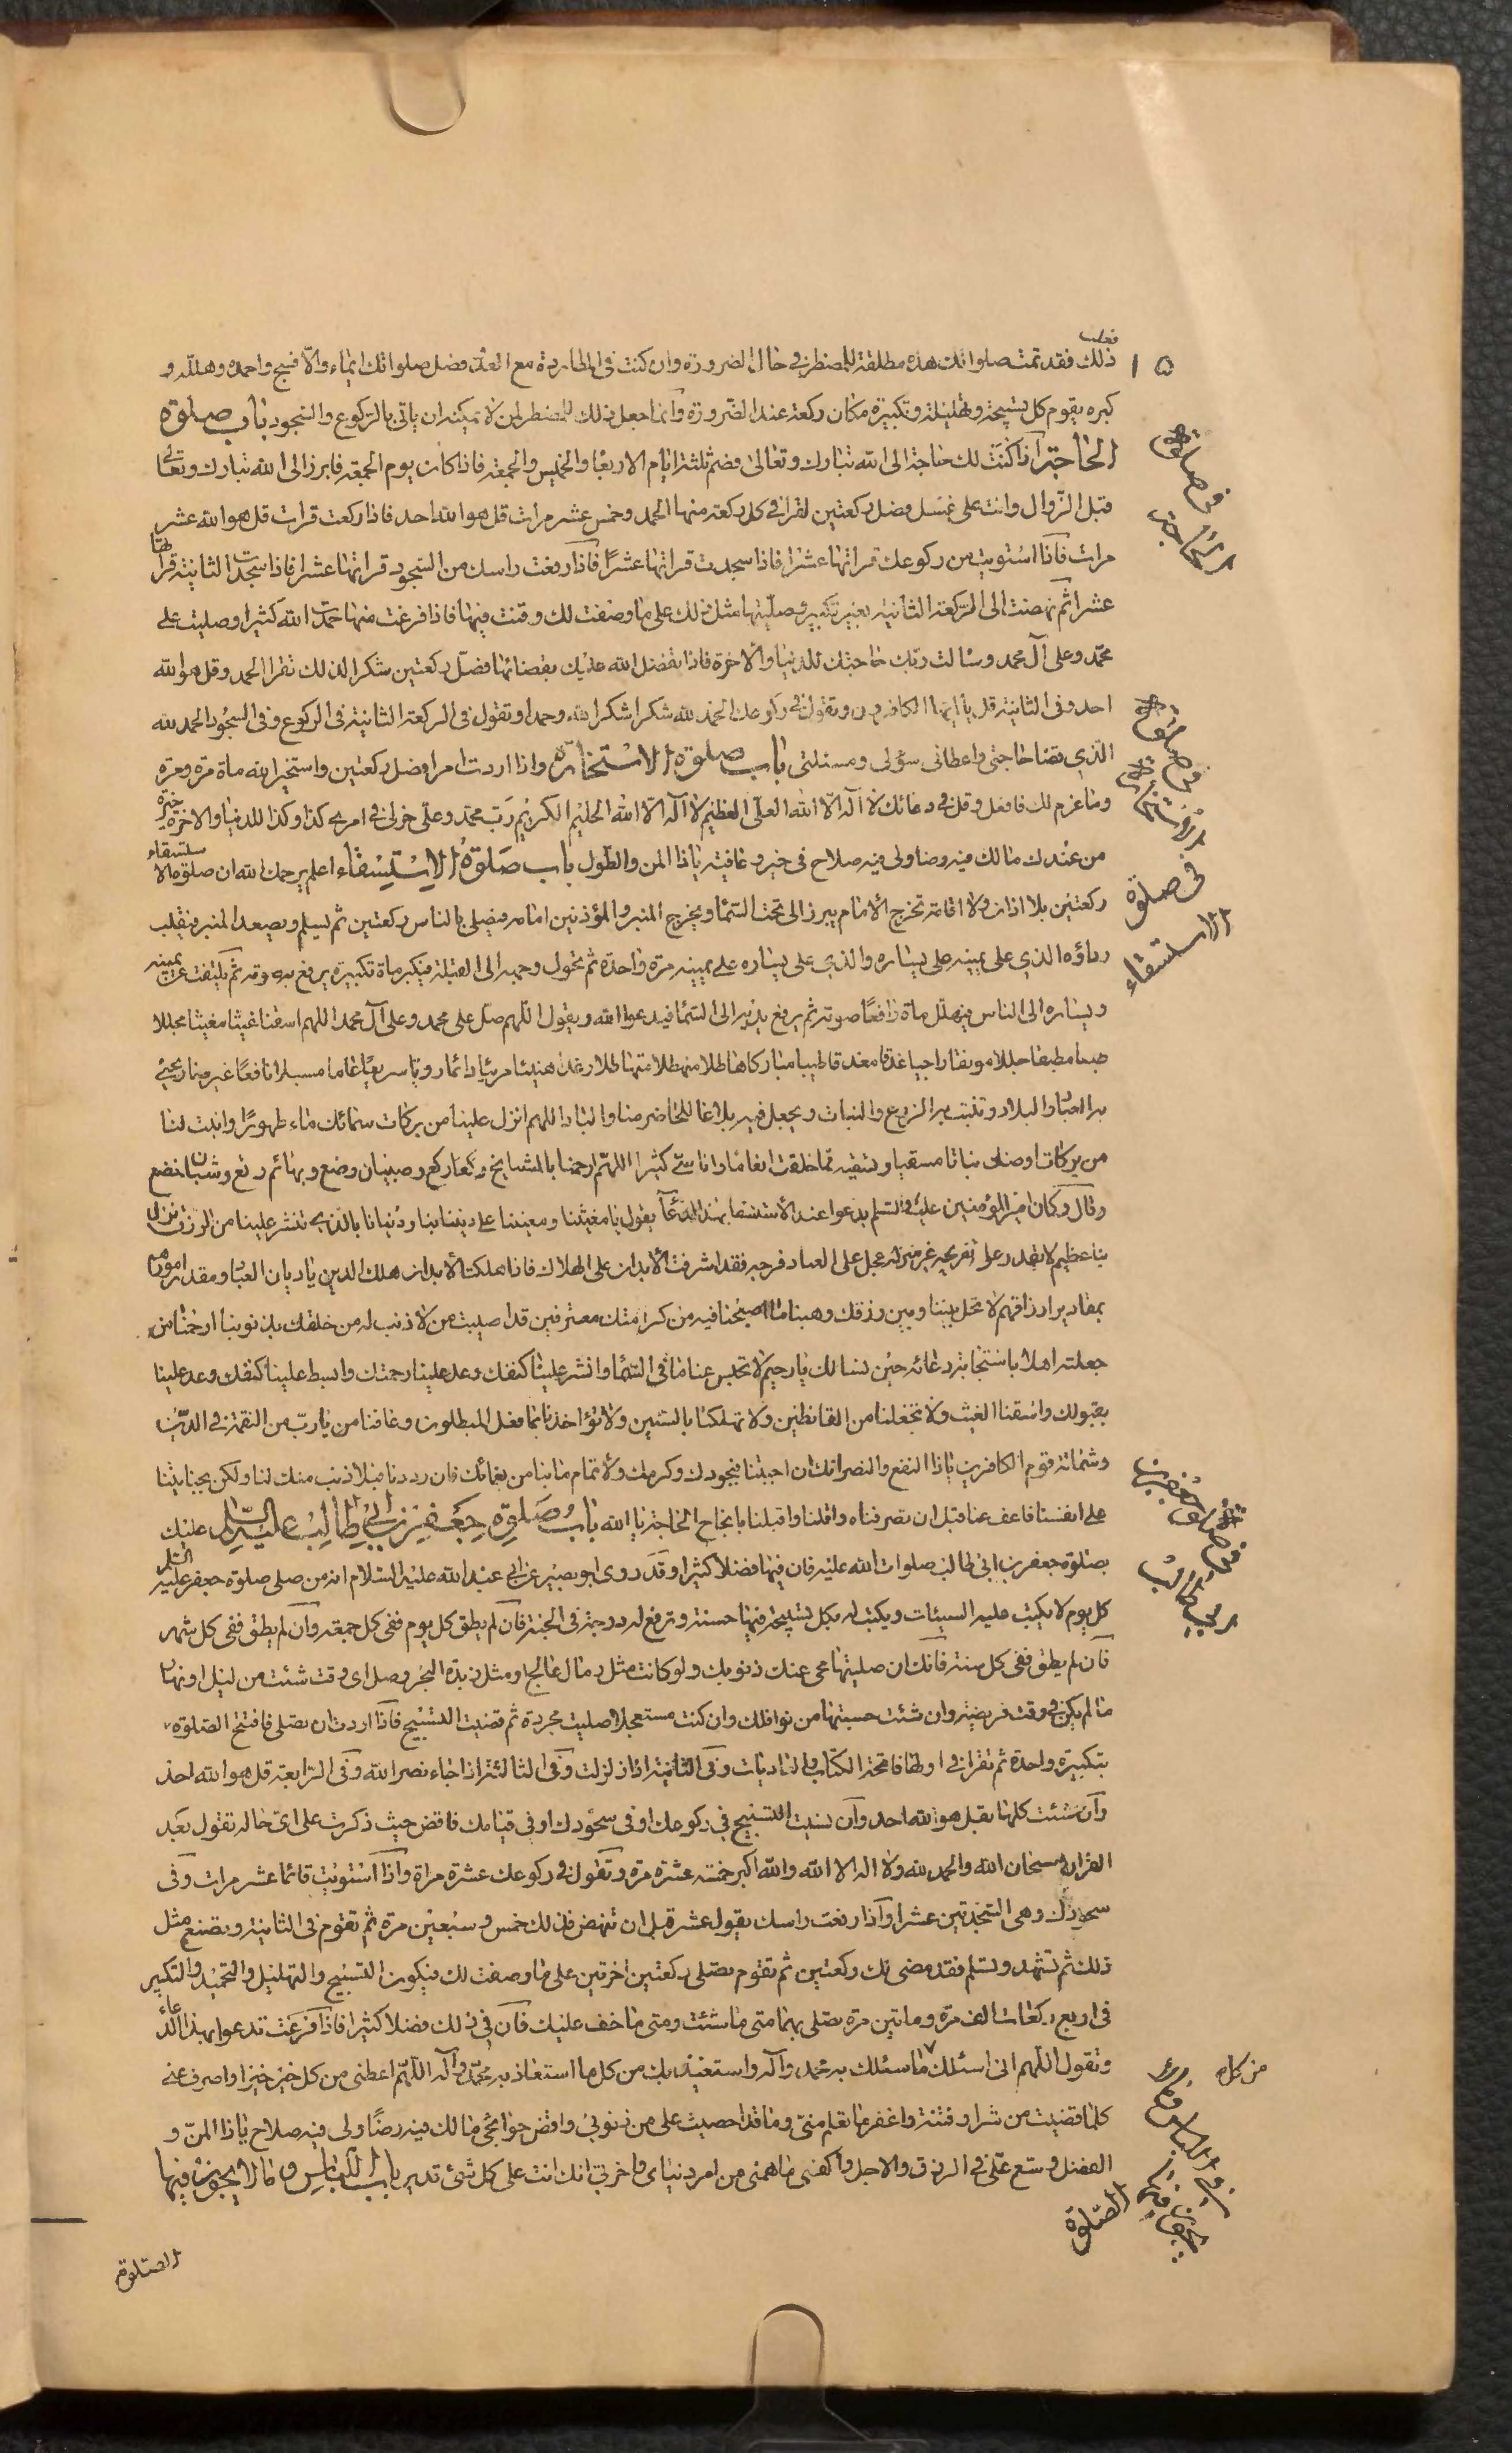 فعلت
١٥
ذلك فقد تمت صلواتك هذه مطلقة للمضطر في حال الضرورة وان كنت في المطاردة مع العدو فصل صلواتك ايماء والا فسبح واحمده وهلله و
كبره يقوم كل تسبيحة وتهليلة وتكبيرة مكان ركعة عند الضرورة وانما جعل ذلك للمضطر لمن لا يمكنه ان ياتي بالركوع والسجود باب صلوة
الحاجة اذا كنت لك حاجة الى الله تبارك وتعالى فصم ثلثة ايام الاربعا والخميس والجمعة فاذا كان يوم الجمعة فابرز الى الله تبارك وتعالى
قبل الزوال وانت على غسل فصل ركعتين تقرا في كل ركعة منهما الحمد وخمس عشر مرات قل هو الله احد فاذا ركعت قرات قل هو الله عشر
مرات فاذا استويت من ركوعك قراتها عشرا فاذا سجدت قراتها عشرًا فاذا رفعت راسك من السجود قراتها عشرا فاذا سجدت الثانية قراتها
عشرا ثم نهضت الى الركعة الثانية بغير تكبير وصليتها مثل ذلك على ما وصفت لك وقنت فيها فاذا فرغت منها حمدت الله كثيرا وصليت على
محمد وعلى آل محمد وسالت ربك حاجتك للدنيا والاخرة فاذا تفضل الله عليك بقضائها فصل ركعتين شكرا لذلك تقرا الحمد وقل هو الله
احد وفي الثانية قل يا ايها الكافرون وتقول في ركوعك الحمد لله شكرا شكرا لله وحمدا وتقول في الركعة الثانية في الركوع وفي السجود الحمد لله
الذي قضا حاجتي واعطاني سؤلي ومسئلتي باب صلوة الاستخارة واذا اردت امرا فصل ركعتين واستخير الله ماة مرة ومرة
وما عزم لك فافعل وقل في دعائك لا اله الا الله العلى العظيم لا اله الا الله الحليم الكريم رب محمد وعلى خرلي في امري كذا وكذا للدنيا والاخرة خيرة
من عندك مالك فيه رضا ولي فيه صلاح في خير وعافية ياذا المن والطول باب صلوة الاستسقاء اعلم يرحمك الله ان صلوة الاستسقاء
ركعتين بلا اذان ولا اقامة تخرج الامام يبرز الى تحت السماء ويخرج المنبر والمؤذنين امامه فيصلى بالناس ركعتين ثم يسلم ويصعد المنبر فيقلب
رداؤه الذي على يمينه على يساره والذي على يساره على يمينه مرة واحدة ثم يحول وجهه الى القبلة فيكبر ماة تكبيرة يرفع بها صوته ثم يلتفت عن يمينه
ويساره الى الناس فيهلل ماة رافعًا صوته ثم يرفع يديه الى السماء فيدعوا الله ويقول اللهم صل على محمد وعلى آل محمد اللهم اسقنا غيثا مغيثا مجللا
طبقا مطبقا جللا مونقا راجيا غدقا مغدقا طيبا مباركا هاطلا منهطلا متهاطلا رغدا هنيئا مريئا دائما رويا سريعا عاما مسبلا نافعًا غير ضار تحيي
به العباد والبلاد وتنبت به الزرع والنبات ويجعل فيه بلاغا للحاضر منا والباد اللهم انزل علينا من بركات سمائك ماء طهورًا وانبت لنا
من بركات ارضك نباتا مسقيا وتسقيه مما خلقت انعاما واناسي كثيرا اللهم ارحمنا بالمشايخ ركعا وصبيان رضع وبهائم رتع وشبان خضع
وقال وكان امير المؤمنين عليه السلم يدعوا عند الاستسقا بهذا الدعآ يقول يا مغيثنا ومعيننا على ديننا ودنيانا بالذي تنشر علينا من الرزق نزل
بنا عظيم لا يقدر على تفريجه غير منزله عجل على العباد فرجه فقد اشرفت الابدان على الهلاك فاذا هلكت الابدان هلك الدين يا ديان العباد ومقدر امورهم
بمقادير ارزاقهم لا تحل بيننا وبين رزقك وهبنا ما اصبحنا فيه من كرامتك معترفين قد اصيب من لا ذنب له من خلقك بذنوبنا ارحمنا بمن
جعلته اهلا باستجابة دعائه حين يسالك يا رحيم لا تحبس عنا ما في السماء وانشر علينا كنفك وعد علينا رحمتك وابسط علينا كنفك وعد علينا
بقبولك واسقنا الغيث ولا تجعلنا من القانطين ولا تهلكنا بالسنين ولا تؤاخذنا بما فعل المبطلون وعافنا من يا رب من النقمة في الدين
وشماتة قوم الكافرين ياذا النفع والنصر انك ان اجبتنا فبجودك وكرمك ولاتمام ما بنا من نعمائك فان رددتنا فبلا ذنب منك لنا ولكن بجنايتنا
على انفسنا فاعف عنا قبل ان تصرفناه واقلنا واقبلنا بانجاح الحاجة يا الله باب صلوة جعفر بن ابي طالب عليه السلم عليك
بصلوة جعفر بن ابي طالب صلوات الله عليه فان فيها فضلا كثيرا وقد روى ابو بصير عن ابي عبد الله عليه السلام انه من صلى صلوة جعفر عليه السلم
كل يوم لا يكتب عليه السيئات ويكتب له بكل تسبيحة فيها حسنة وترفع له درجة في الجنة فان لم يطق كل يوم ففى كل جمعة وان لم يطق ففى كل شهر
فان لم يطق ففى كل سنة فانك ان صليتها محى عنك ذنوبك ولو كانت مثل رمال عالج او مثل زبد البحر وصل اى وقت شئت من ليل او نهار
ما لم يكن في وقت فريضية وان شئت حسبتها من نوافلك وان كنت مستعجلا صليت مجردة ثم قضيت التسبيح فاذا اردت ان تصلى فافتتح الصلوة
بتكبيرة واحدة ثم تقرا في اولها فاتحة الكتاب والعاديات وفى الثانية اذا زلزلت وفى الثالثة اذا جاء نصر الله وفى الرابعة قل هو الله احد
وان شئت كلها بقل هو الله احد وان نسيت التسبيح في ركوعك او فى سجودك او فى قيامك فاقض حيث ذكرت على اى حالة تقول بعد
القراة سبحان الله والحمد لله ولا اله الا الله والله اكبر خمسة عشرة مرة وتقول في ركوعك عشرة مراة واذا استويت قائما عشر مرات وفى
سجودك وهى السجدتين عشرا واذا رفعت راسك يقول عشر قبل ان تنهض فذلك خمس وسبعين مرة ثم تقوم في الثانية وتصنع مثل
ذلك ثم تشهد وتسلم فقد مضى لك ركعتين ثم تقوم تصلى ركعتين اخرتين على ما وصفت لك فيكون التسبيح والتهليل والتحميد والتكبير
فى اربع ركعات الف مرة وماتين مرة تصلى بها متى ما شئت ومتى ما خف عليك فان في ذلك فضلا كثيرا فاذا فرغت تدعوا بهذا الدعاء
وتقول اللهم انى اسئلك ما سئلك به محمد وآله واستعيذ بك من كل ما استعاذ به محمد وآله اللهم اعطنى من كل خير خيرا واصرف عنى
كلما قضيت من شر او فتنة واغفر ما تعلم منى وما قد احصيت على من ذنوبى واقض حوائجى مالك فيه رضًا ولى فيه صلاح ياذا المن و
الفضل ووسع على في الرزق والاجل واكفنى ما اهمنى من امر دنياى واخرتى انك انت على كل شئ قدير باب اللباس وما لا يجوز فيها
في صلوة الحاجة
في صلوة الاستخارة
فى صلوة الاستسقاء
في صلوة جعفر بن ابي طالب
من كل
في اللباس وما لا يجوز فيها الصلوة
الصلوة